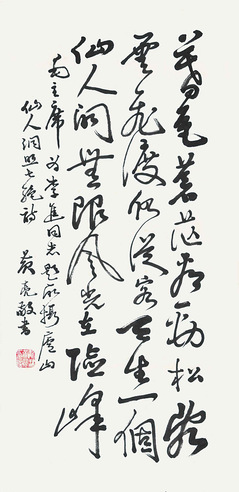 暮色苍茫看劲松乱
云飞渡仍从容天生一個
仙人洞無限风光在險峰
毛主席为李進同志题所攝廬山
仙人洞照七绝诗
黄亮敬书